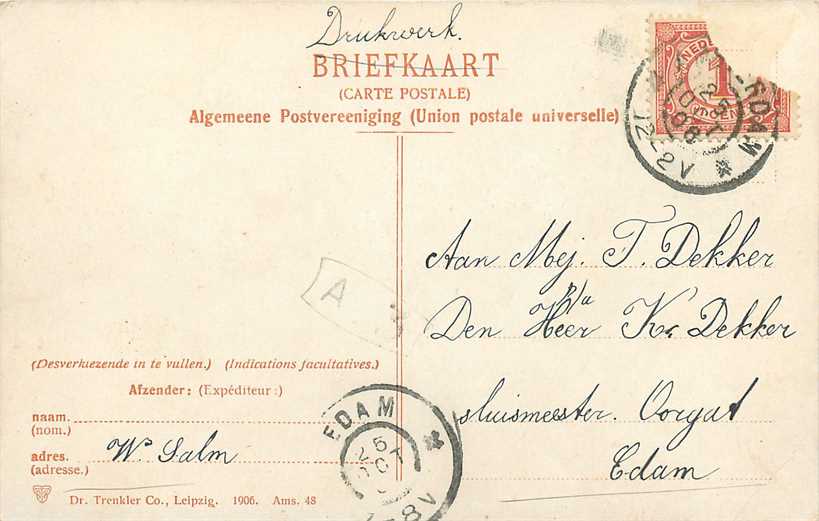 Drukwerk.
BRIEFKAART
(CARTE POSTALE)
Algemeene Postvereeniging (Union postale universelle)
NED
1
25 OCT 08
12-2V
A
Aan Mej. T. Dekker
p/a
Den Heer K. Dekker
sluismeester. Oorgat
Edam
(Desverkiezende in te vullen.) (Indications facultatives.)
Afzender: (Expéditeur:)
naam.
(nom.)
adres.
(adresse.)
W. Salm
EDAM
25 OCT
-8V
Dr. Trenkler Co., Leipzig. 1906. Ams. 48